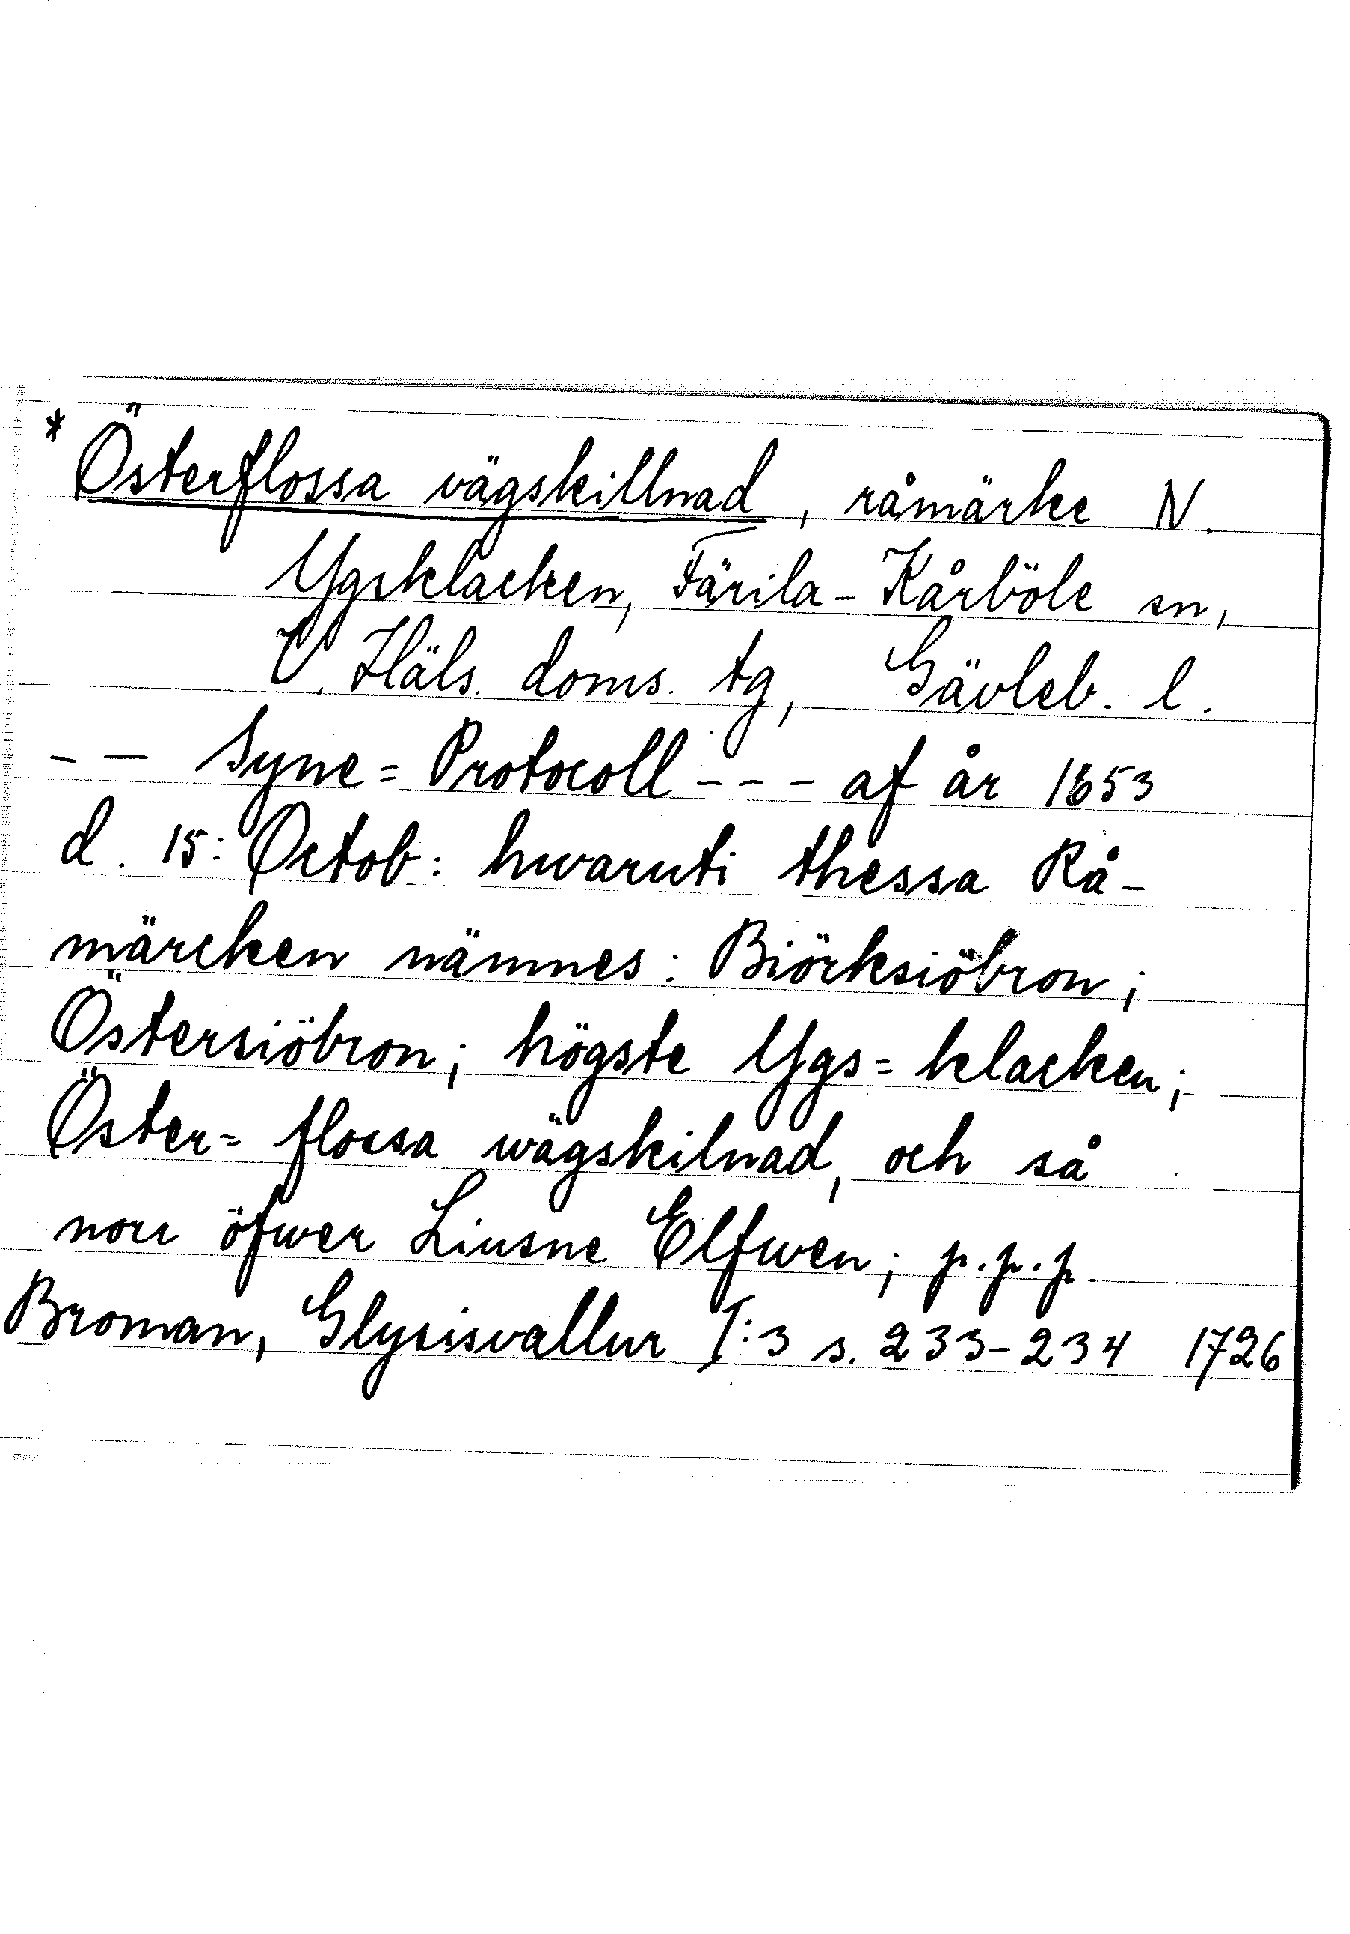 * Österflossa vägskillnad, råmärke N.
Ygsklacken, Färila-Kårböle sn,
V. Häls. doms. tg, Gävleb. l.
- - Syne=Protocoll - - - af år 1653
d. 15: Octob: hwaruti thessa Rå-
märcken nämnes: Biörksiöbron;
Östersiöbron; högste Ygs=klacken;
Öster=flossa wägskilnad, och så
norr öfwer Liusne Elfwen; p.p.p.
Broman, Glysisvallur I:3 s. 233-234 1726